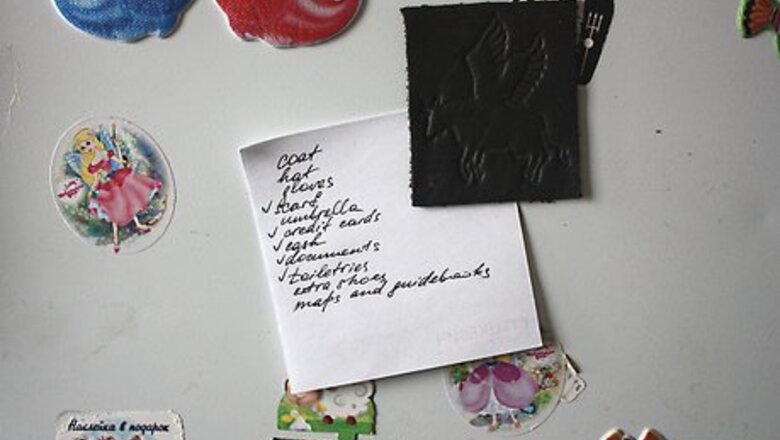 coat
hat
gloves
✓ scarf
umbrella
✓ credit cards
✓ cash
✓ documents
✓ toiletries
extra shoes
maps and guidebooks
Наклейка в подарок